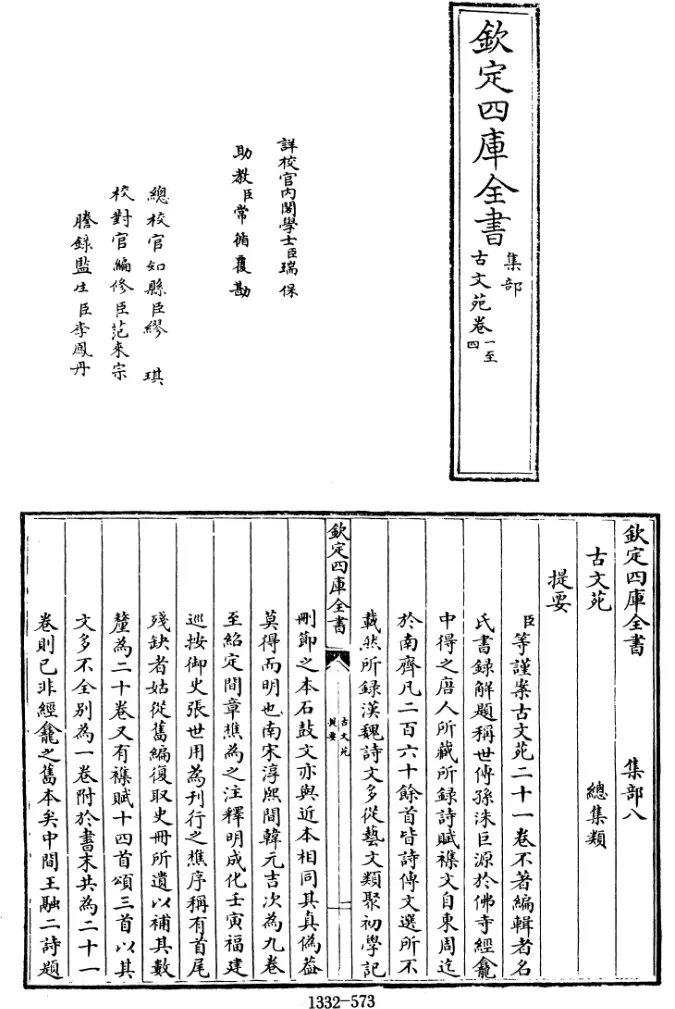 欽定四庫全書
集部
古文苑卷一至四
詳校官內閣學士臣瑞保
助教臣常循覆勘
總校官知縣臣繆琪
校對官編修臣范來宗
謄錄監生臣李鳳丹
欽定四庫全書 集部八
古文苑 總集類
提要
臣等謹案古文苑二十一卷不著編輯者名
氏書録解題稱世傳孫洙巨源於佛寺經龕
中得之唐人所藏所録詩賦襍文自東周迄
於南齊凡二百六十餘首皆詩傳文選所不
載然所録漢魏詩文多從藝文類聚初學記
欽定四庫全書
古文苑
提要
一
刪節之本石鼓文亦與近本相同其真偽葢
莫得而明也南宋淳熈間韓元吉次為九卷
至紹定間章樵為之注釋明成化壬寅福建
巡按御史張世用為刊行之樵序稱有首尾
殘缺者姑從舊編復取史冊所遺以補其數
釐為二十卷又有襍賦十四首頌三首以其
文多不全別為一卷附於書末共為二十一
卷則已非經龕之舊本矣中間王融二詩題
1332-573